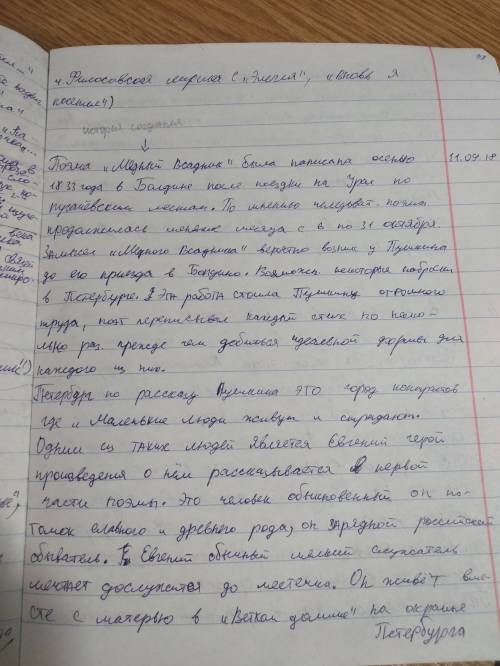 4. Философская лирика ("Элегия", "Вновь я
посетил")
история создания
Поэма "Медный Всадник" была написана осенью
11.09.18
1833 года в Болдине после поездки на Урал по
пугачёвским местам. По мнению поэма
продолжалась меньше месяца с 6 по 31 октября.
Замысел "Медного Всадника" вероятно возник у Пушкина
до его приезда в Болдино. Возможен некоторые наброски
в Петербурге. Эта работа стоила Пушкину огромного
труда, поэт переписывал каждый стих по неско
лько раз прежде чем добился идеальной формы для
каждого из них.
Петербург по рассказу Пушкина это город контрастов
где и маленькие люди живут и страдают.
Одним из таких людей является Евгений герой
произведения о нём рассказывается в первой
части поэмы. Это человек обыкновенный он по-
томок славного и древнего рода, он рядной российский
обыватель. Евгений обычный мелкий служатель
мечтает дослужится до местечка. Он живёт вме-
сте с матерью в "Ветхом домике" на окраине
Петербурга